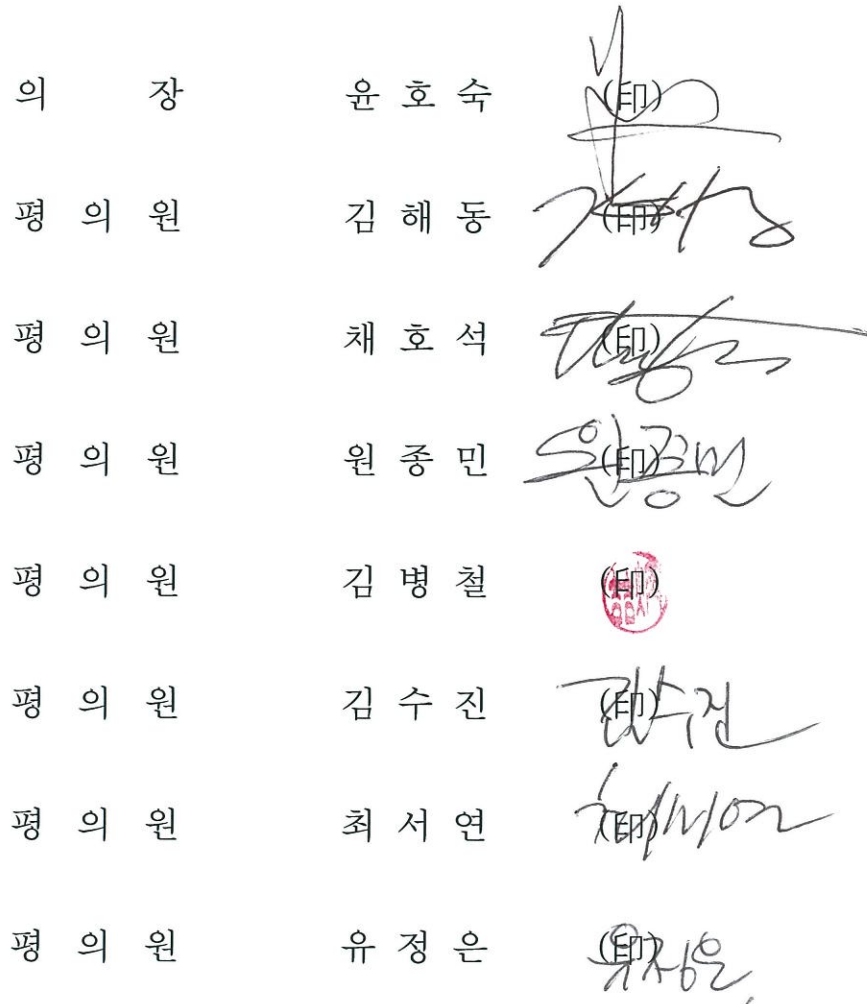 의 장 윤 호 숙 (印)
평 의 원 김 해 동 (印)
평 의 원 채 호 석 (印)
평 의 원 원 종 민 (印) 원종민
평 의 원 김 병 철 (印)
평 의 원 김 수 진 (印) 김수진
평 의 원 최 서 연 (印) 최서연
평 의 원 유 정 은 (印) 유정은